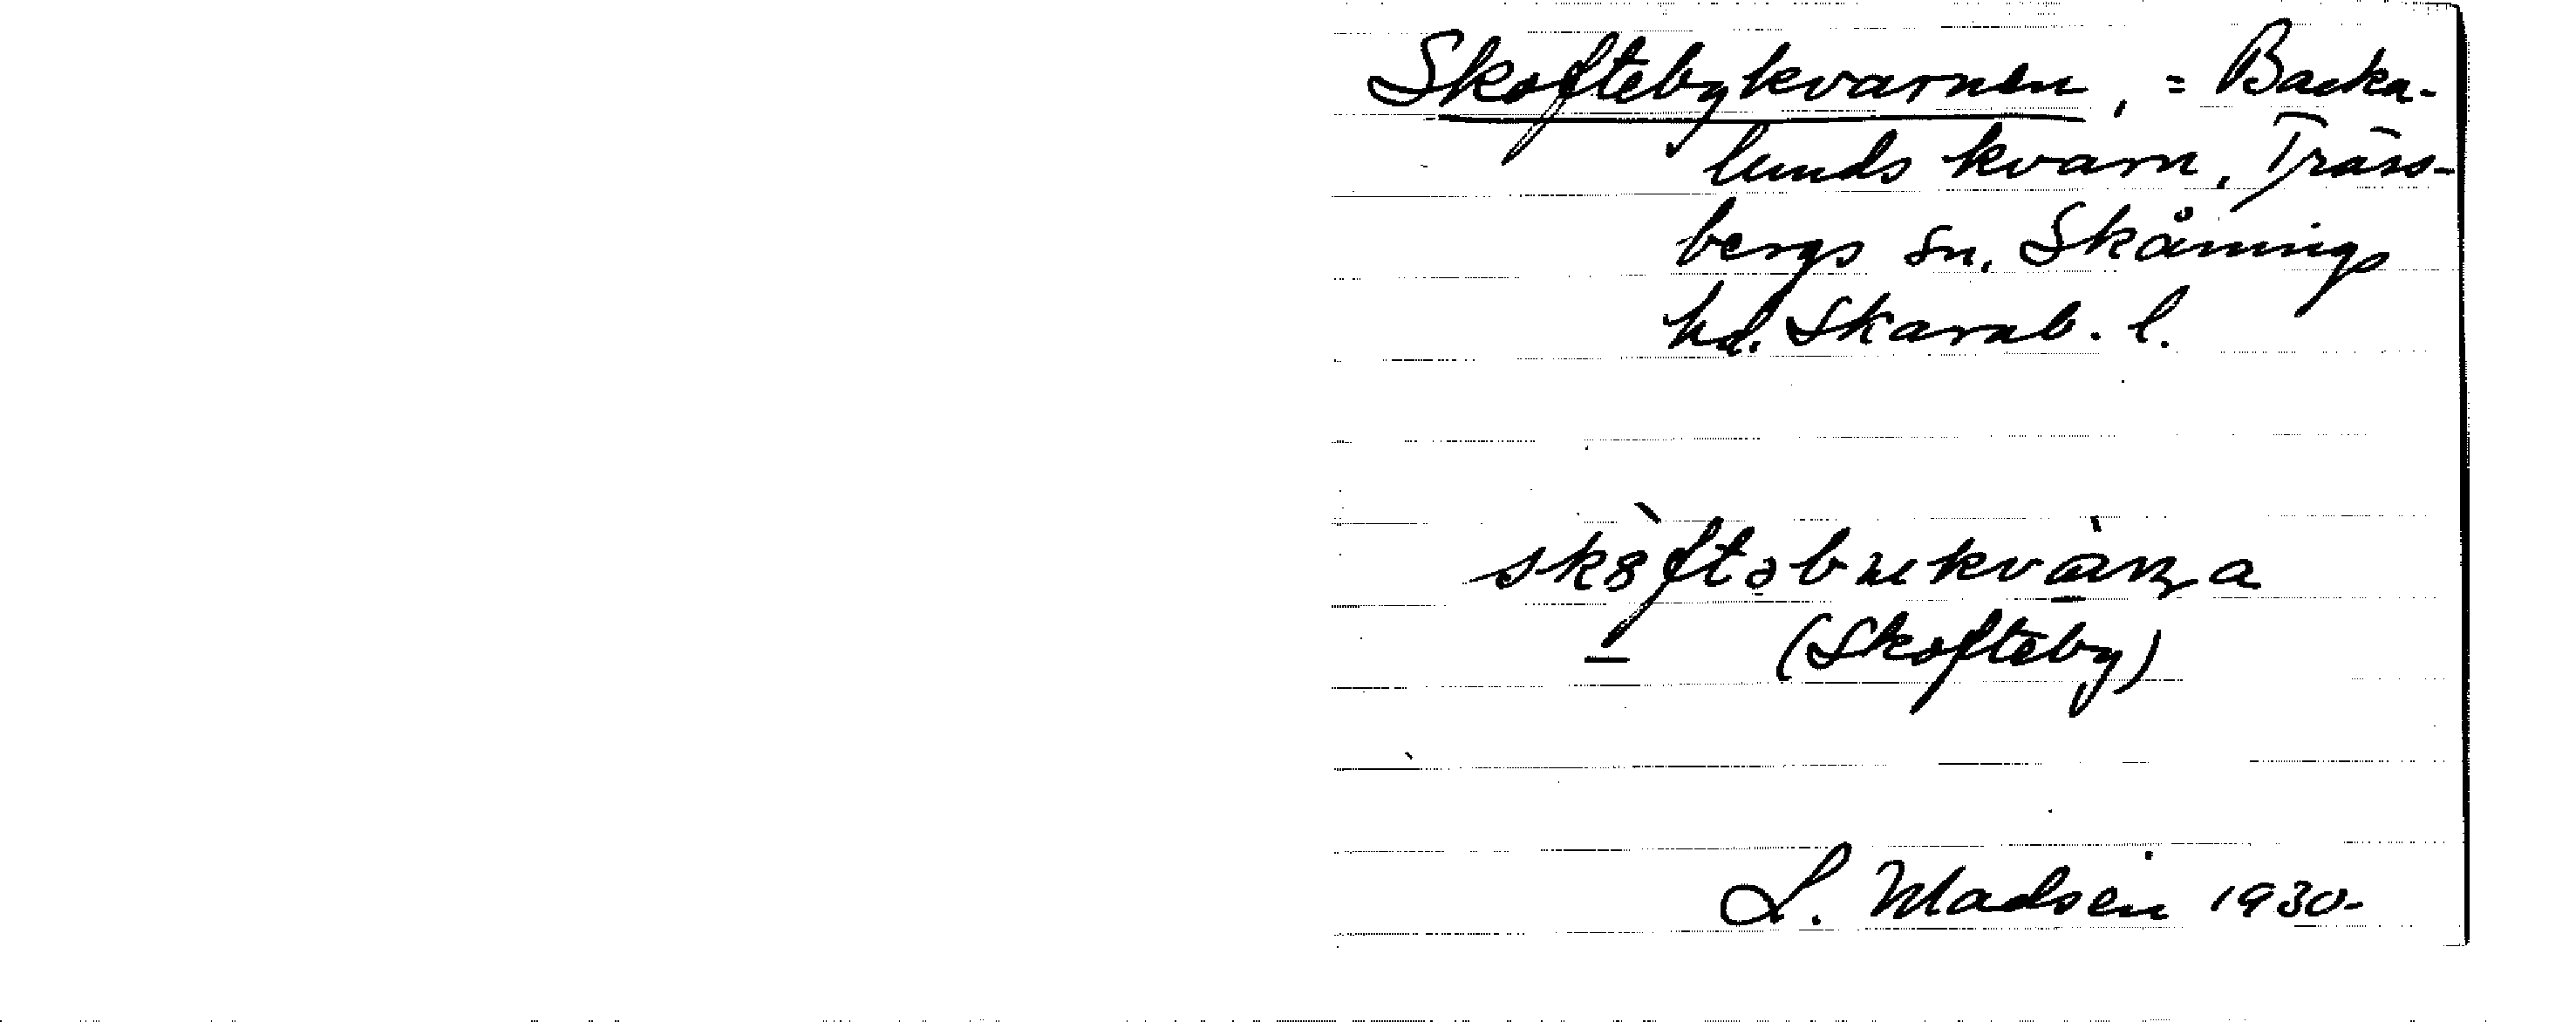 Skoftebykvarnen, = Backa-
lunds kvarn, Träss-
bergs sn. Skånings
hd. Skarab. l.
(Skofteby)
L. Madsén 1930-